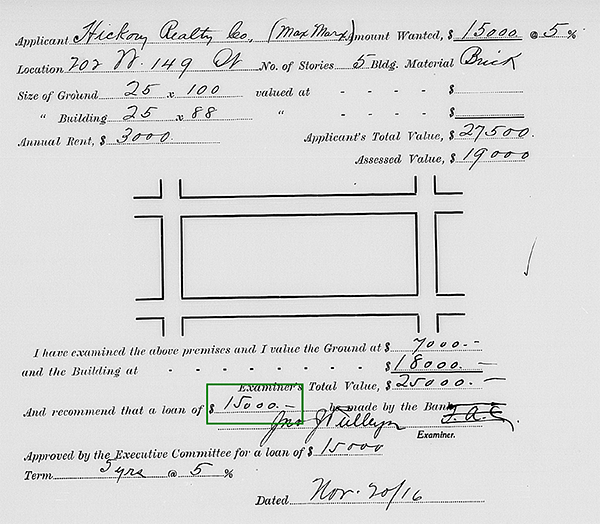 Applicant Hickory Realty Co, (Max Marx) Amount Wanted, $ 15000 @ 5 %
Location 702 W. 149 St No. of Stories 5 Bldg. Material Brick
Size of Ground 25 x 100 valued at - - - - $
" Building 25 x 88 " - - - - $
Annual Rent, $ 3000 Applicant's Total Value, $ 27500.
Assessed Value, $ 19000
I have examined the above premises and I value the Ground at $ 7000.-
and the Building at - - - - - - - - $ 18000.-
Examiner's Total Value, $ 25000.-
And recommend that a loan of $ 15000.- be made by the Bank
Examiner.
Approved by the Executive Committee for a loan of $ 15000
Term 3 yrs @ 5 %
Dated Nov. 20/16